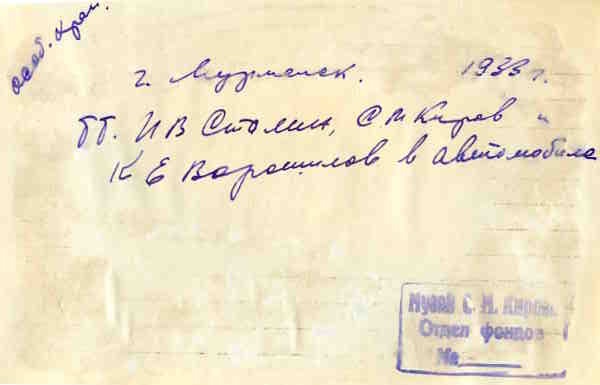 особ. хран.
г. Мурманск. 1933 г.
тт. И В Сталин, С М Киров и
К Е Ворошилов в автомобиле
Музей С. М. Кирова
Отдел фондов
№